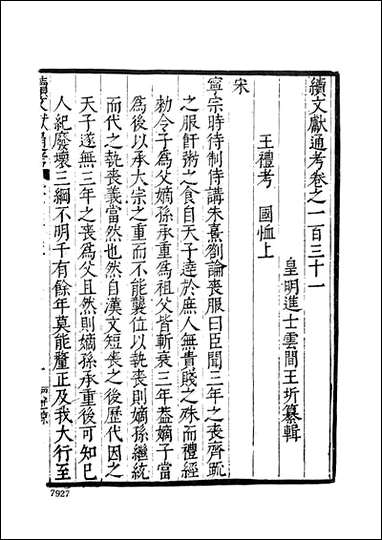 續文獻通考卷之一百三十一
皇明進士雲間王圻纂輯
王禮考　國恤上
宋
寧宗時待制侍講朱熹劄論喪服曰臣聞三年之喪齊䟽
之服飦粥之食自天子達於庶人無貴賤之殊而禮經
勑令子為父嫡孫承重為祖父皆斬衰三年蓋嫡子當
為後以承大宗之重而不能襲位以執喪則嫡孫繼統
而代之執喪義當然也然自漢文短喪之後歷代因之
天子遂無三年之喪為父且然則嫡孫承重後可知已
人紀廢壞三綱不明千有餘年莫能釐正及我大行至
續文獻通考
一
7927